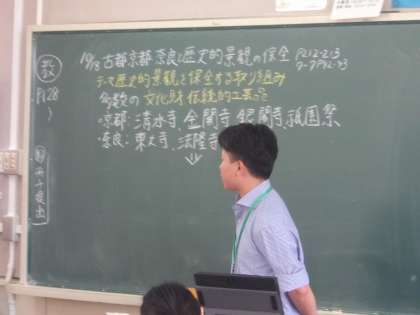 教
P128
10/8 古都京都 奈良と歴史的景観の保全 P212-213
テーマ 歴史的景観を保全する取り組み
多数の文化財 伝統的工芸品
・京都：清水寺，金閣寺 銀閣寺，祇園祭
・奈良：東大寺，法隆寺
冊子提出